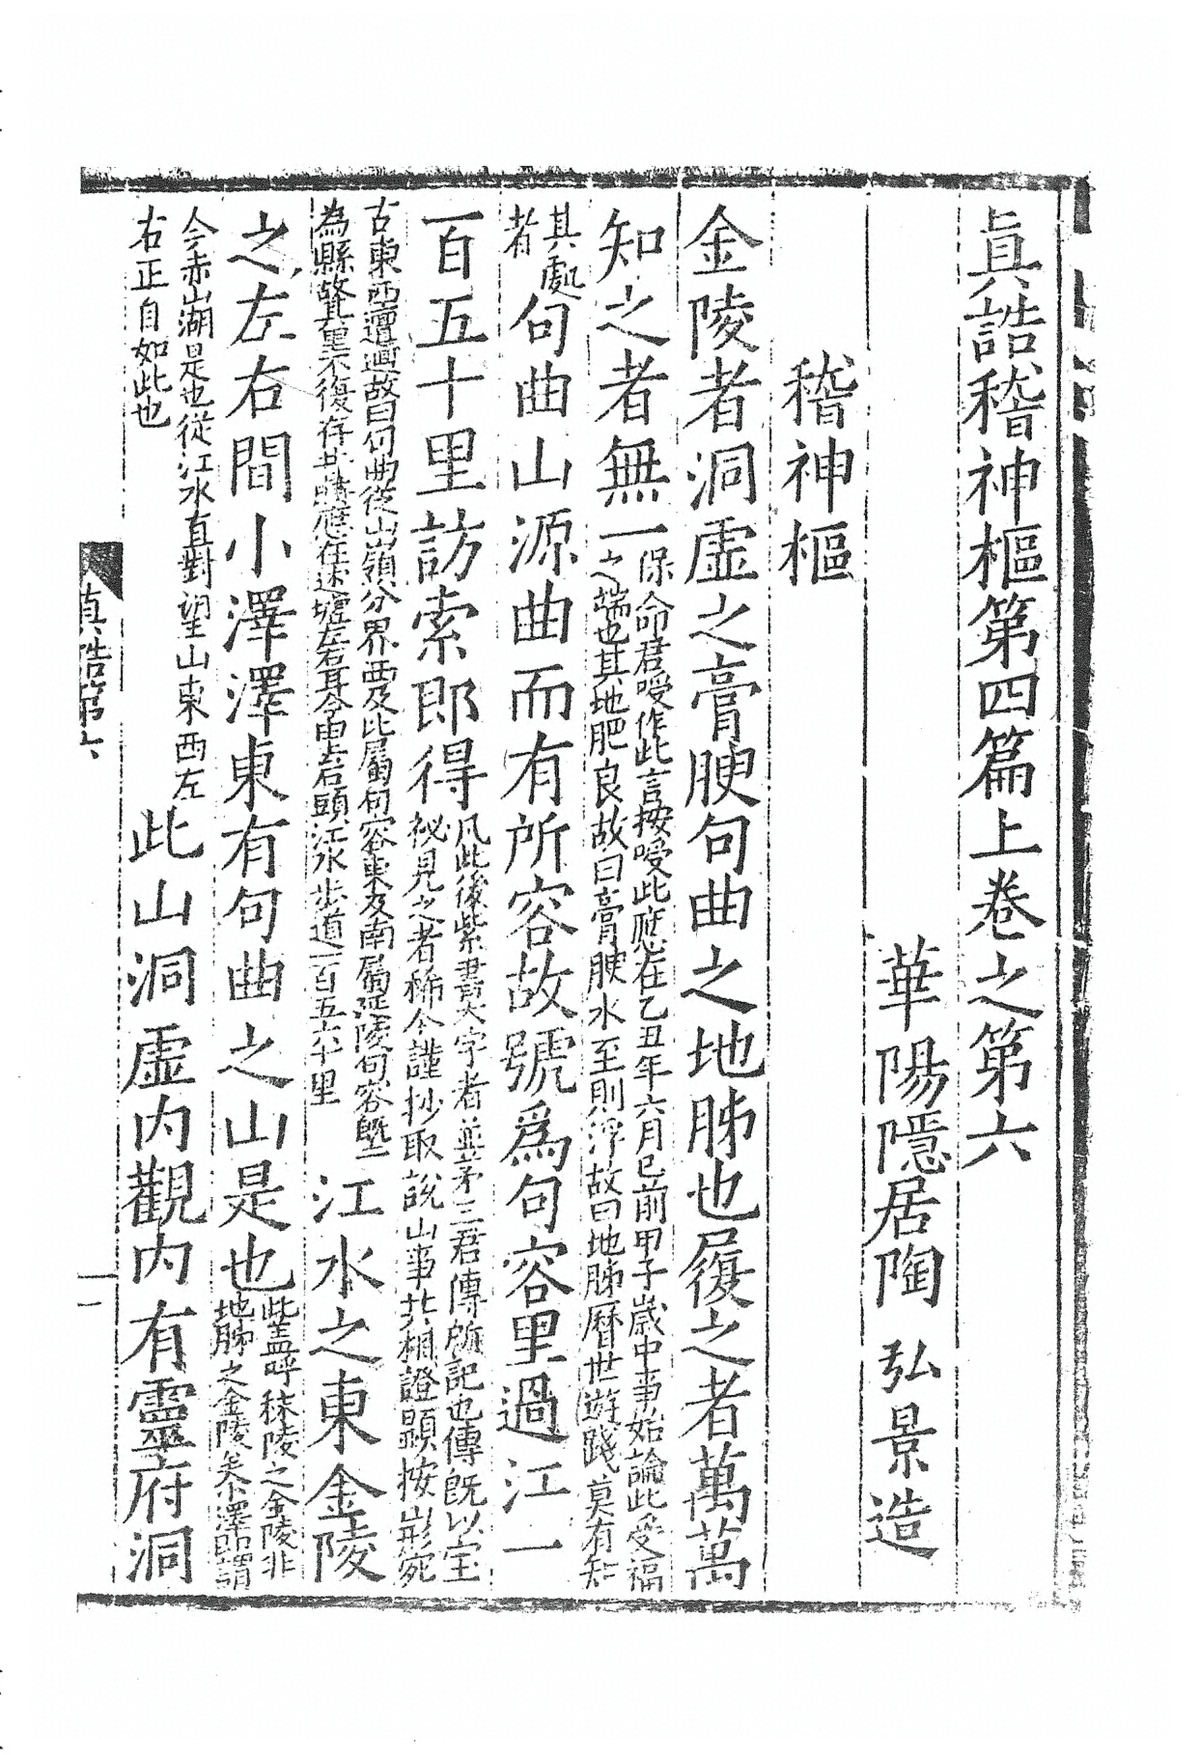 真誥稽神樞第四篇上卷之第六
華陽隱居陶 弘景造
稽神樞
金陵者洞虛之膏腴句曲之地肺也履之者萬萬
知之者無一
保命君噯作此言按噯此應在乙丑年六月已前甲子歲中事始論此受福
之端也其地肥良故曰膏腴水至則浮故曰地肺曆世遊踐莫有知
其處
者
句曲山源曲而有所容故號爲句容里過江一
百五十里訪索即得
凡此後紫書大字者並茅三君傳所記也傳既以宝
祕見之者稀今謹抄取說山事共相證顯按山形宛
古東西邅迴故曰句曲從山嶺分界西及北屬句容東及南屬延陵句容既
為縣故其里不復存昔時應在述墟左右耳今由去石頭江水步道一百五六十里
江水之東金陵
之左右間小澤澤東有句曲之山是也
此蓋呼秣陵之金陵非
地肺之金陵矣小澤即謂
今赤山湖是也從江水直對望山東西左
右正自如此也
此山洞虛内觀内有靈府洞
真誥第六
一